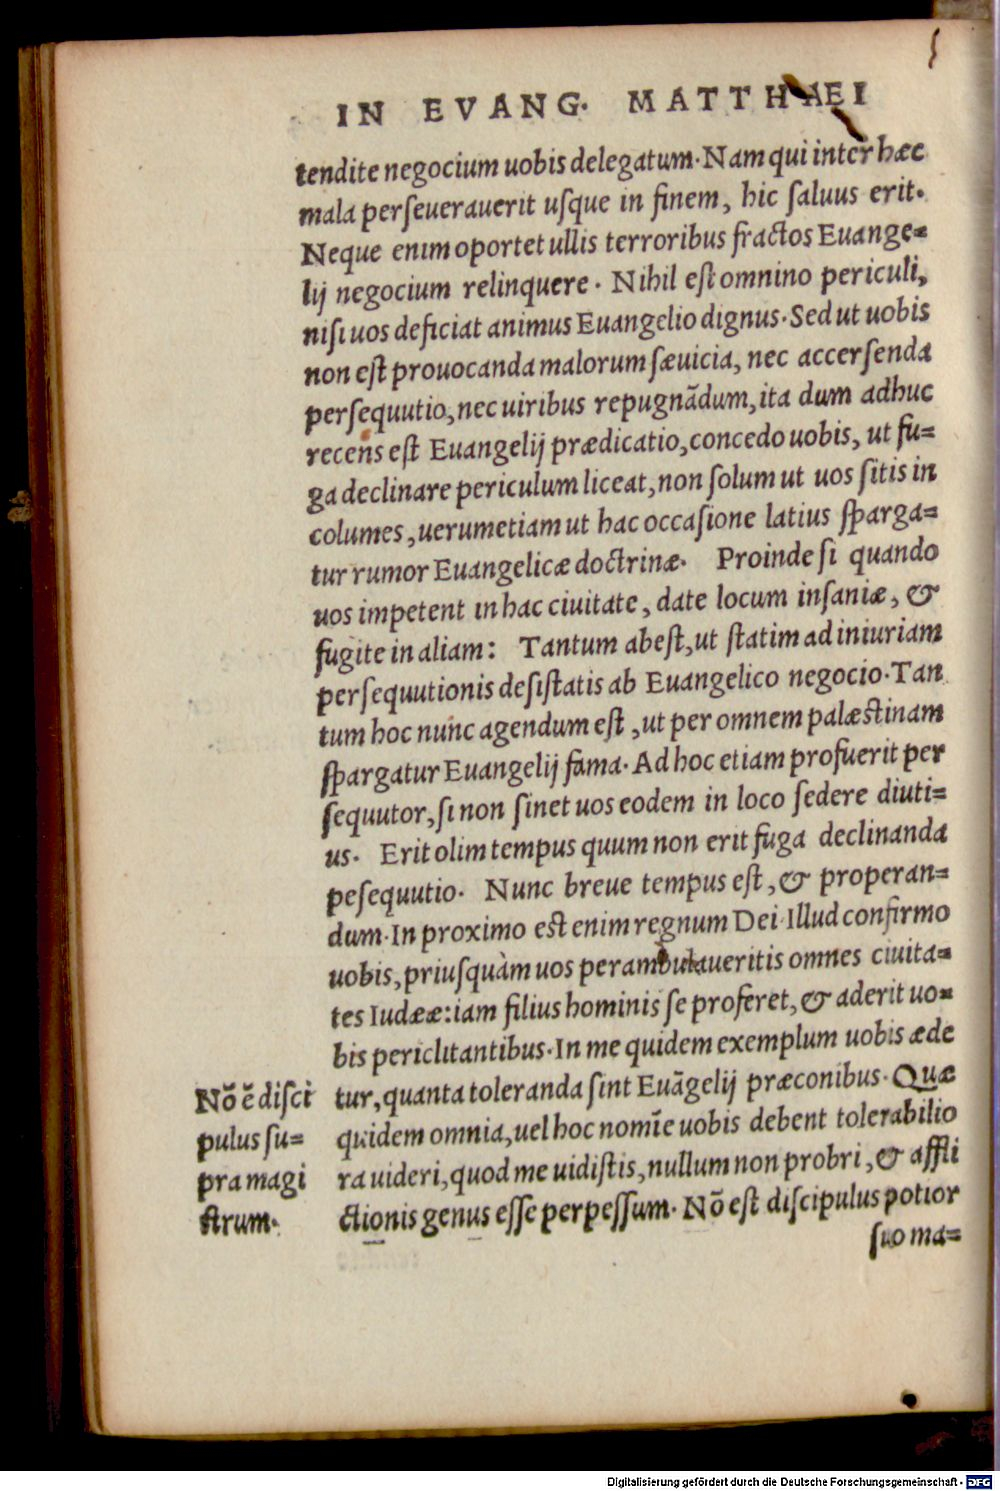 IN EVANG. MATTHAEI
tendite negocium uobis delegatum. Nam qui inter hæc
mala perſeuerauerit uſque in finem, hic ſaluus erit.
Neque enim oportet ullis terroribus fractos Euange=
lij negocium relinquere. Nihil eſt omnino periculi,
niſi uos deficiat animus Euangelio dignus. Sed ut uobis
non eſt prouocanda malorum ſæuicia, nec accerſenda
perſequutio, nec uiribus repugnãdum, ita dum adhuc
recens eſt Euangelij prædicatio, concedo uobis, ut fu=
ga declinare periculum liceat, non ſolum ut uos ſitis in
columes, uerumetiam ut hac occaſione latius ſparga=
tur rumor Euangelicæ doctrinæ. Proinde ſi quando
uos impetent in hac ciuitate, date locum inſaniæ, &
fugite in aliam: Tantum abeſt, ut ſtatim ad iniuriam
perſequutionis deſiſtatis ab Euangelico negocio. Tan
tum hoc nunc agendum eſt, ut per omnem palæſtinam
ſpargatur Euangelij fama. Ad hoc etiam profuerit per
ſequutor, ſi non ſinet uos eodem in loco ſedere diuti=
us. Erit olim tempus quum non erit fuga declinanda
peſequutio. Nunc breue tempus eſt, & properan=
dum. In proximo eſt enim regnum Dei. Illud confirmo
uobis, priuſquàm uos perambulaueritis omnes ciuita=
tes Iudææ: iam filius hominis ſe proferet, & aderit uo=
bis periclitantibus. In me quidem exemplum uobis æde
tur, quanta toleranda ſint Euãgelij præconibus. Quæ
quidem omnia, uel hoc nomīe uobis debent tolerabilio
ra uideri, quod me uidiſtis, nullum non probri, & affli
ctionis genus eſſe perpeſſum. Nõ eſt diſcipulus potior
ſuo ma=
Nõ ẽ diſci
pulus ſu=
pra magi
ſtrum.
Digitalisierung gefördert durch die Deutsche Forschungsgemeinschaft - DFG